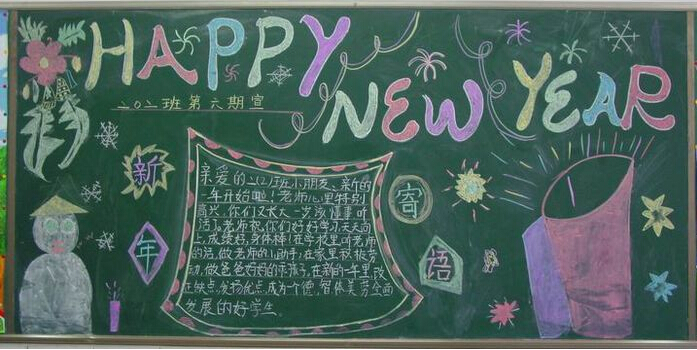 HAPPY
NEW YEAR
二〇二班 第六期 宣
新
年
亲爱的二〇二班小朋友、新的
一年开始啦!老师心里特别
高兴,你们又长大一岁该懂事听
话了。老师祝你们好好学习天天向
上,成绩好,身体棒!在学校里听老师
的话,做老师的小助手,在家里积极劳
动,做爸爸妈妈的乖孩子,在新的一年里改
正缺点,发扬优点,成为一个德、智体美劳全面
发展的好学生。
寄
语